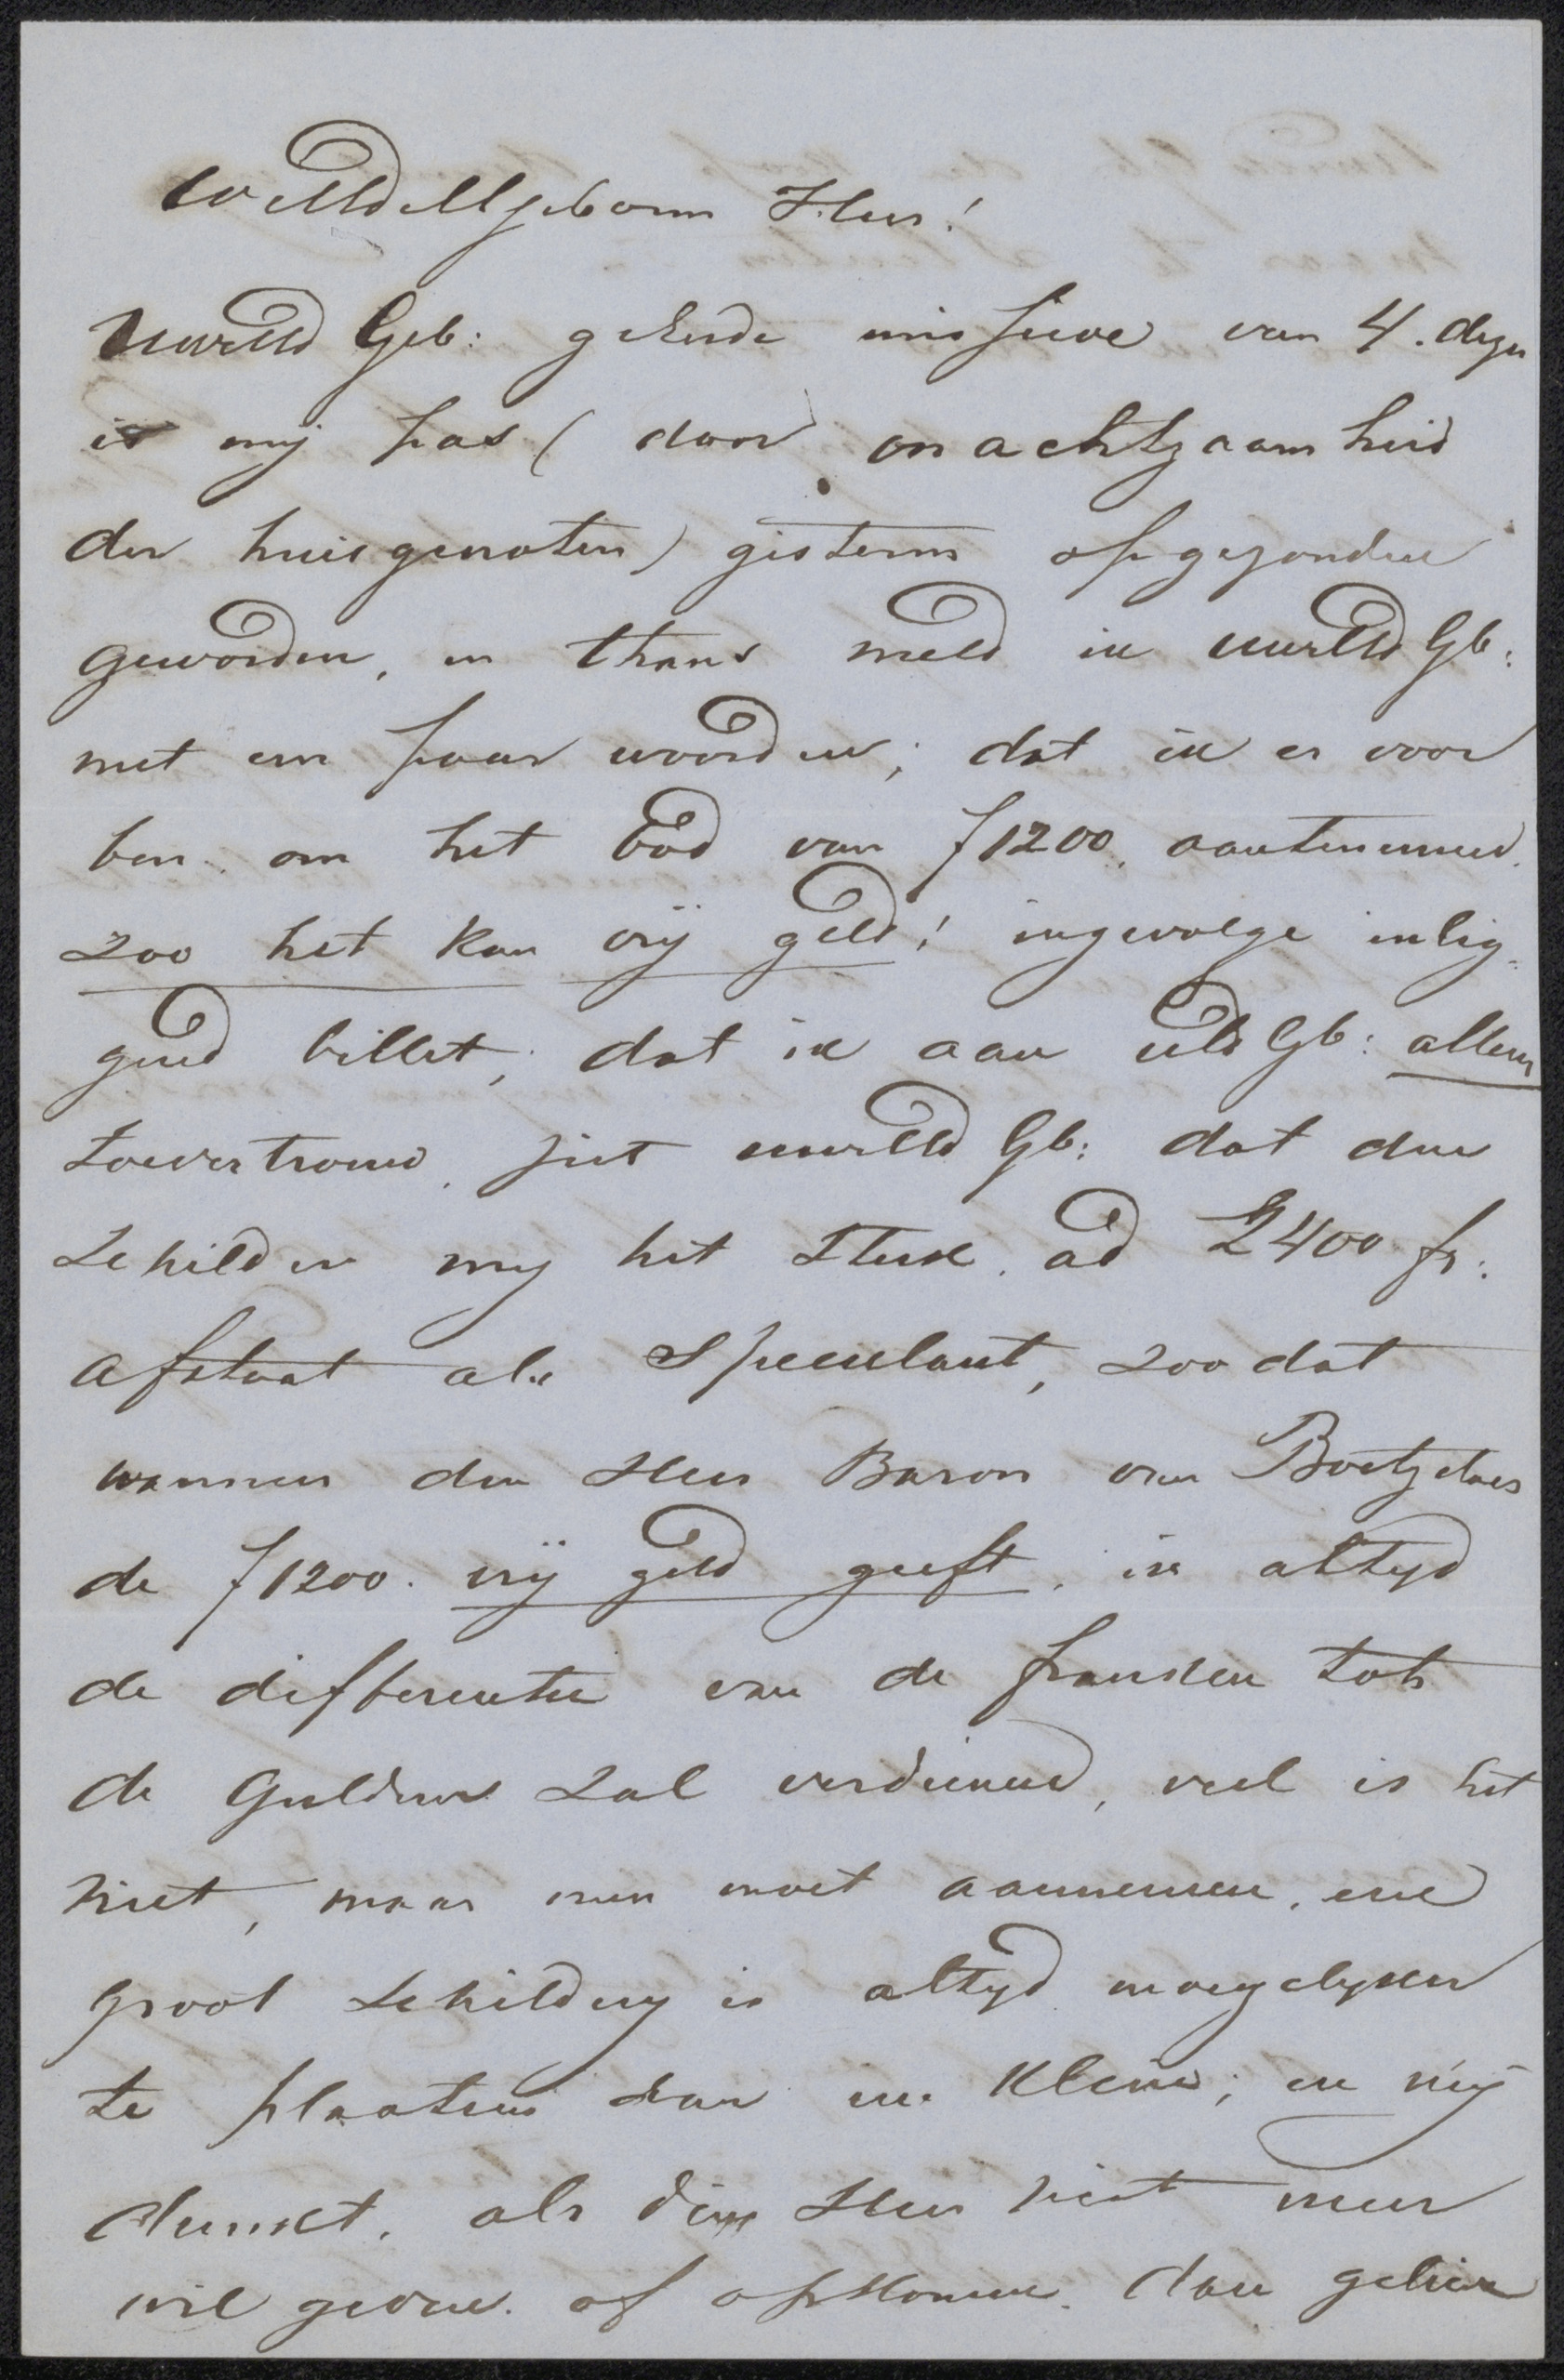 WelEdelgeboren Heer!
UwelEd Geb: geëerde missieve van 4. dezer
is mij pas (door onachtzaamheid
der huisgenoten) gisteren opgezonden
geworden, en thans meld ik UwelEd Gb:
met een paar woorden; dat ik er voor
ben om het bod van f1200. aantenemen.
zoo het kan vrij geld! ingevolge inlig=
gend billet, dat ik aan UEd Gb: alleen
toevertrouw, ziet UwelEd Gb: dat den
Schilder mij het Stuk. ad 2400 fr:
afstaat als Speculant, zoo dat
wanneer den Heer Baron van Boetzelaer
de f1200. vrij geld geeft. ik altyd
de differentie van de franken tot
de Guldens zal verdienen, veel is het
niet, maar men moet aannemen, een
groot Schildery is altyd moeyelyker
te plaatsen dan een kleine; en mij
dunkt. als die Heer niet meer
wil geven. of opkomen. dan gelieve